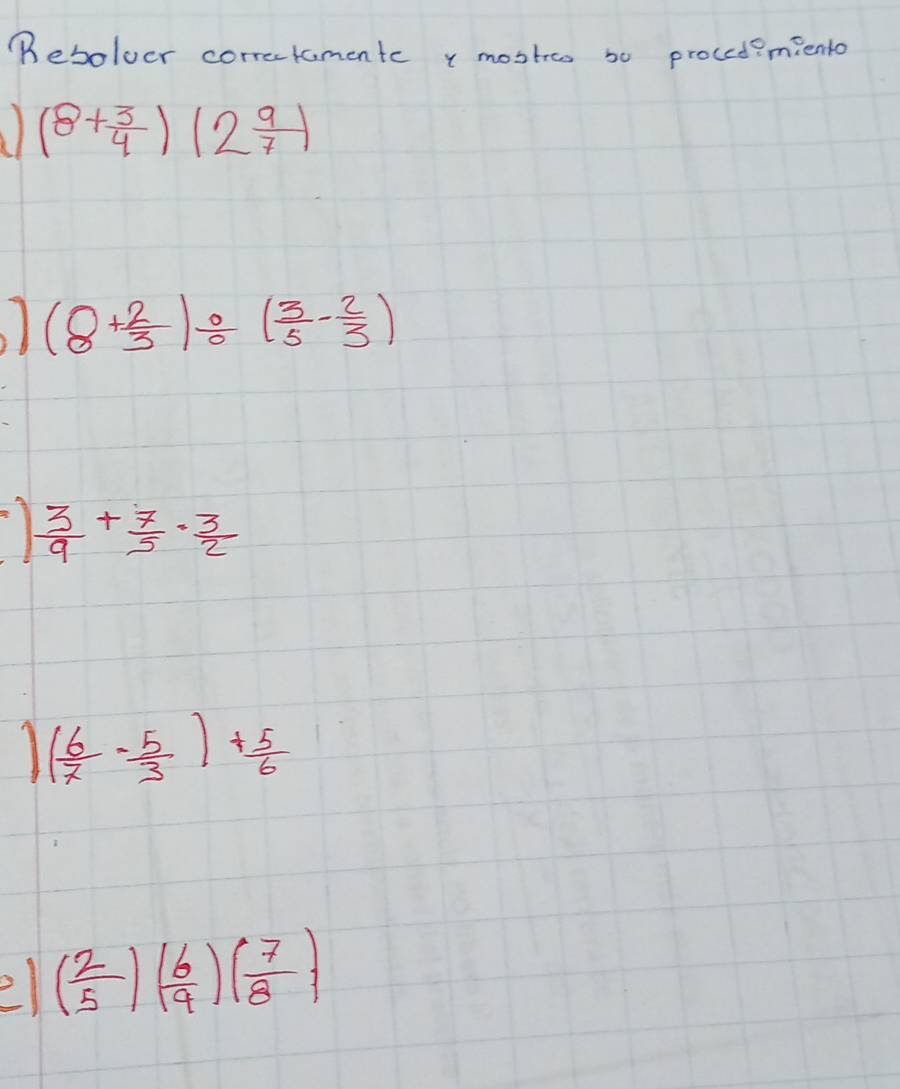 Resolver correctamente y mostres su procedimiento
) (8 + 3/4) (2 9/7)
) (8 + 2/3) ÷ (3/5 - 2/3)
) 3/9 + 7/5 - 3/2
) (6/7 - 5/3) + 5/6
e) (2/5) (6/9) (7/8)